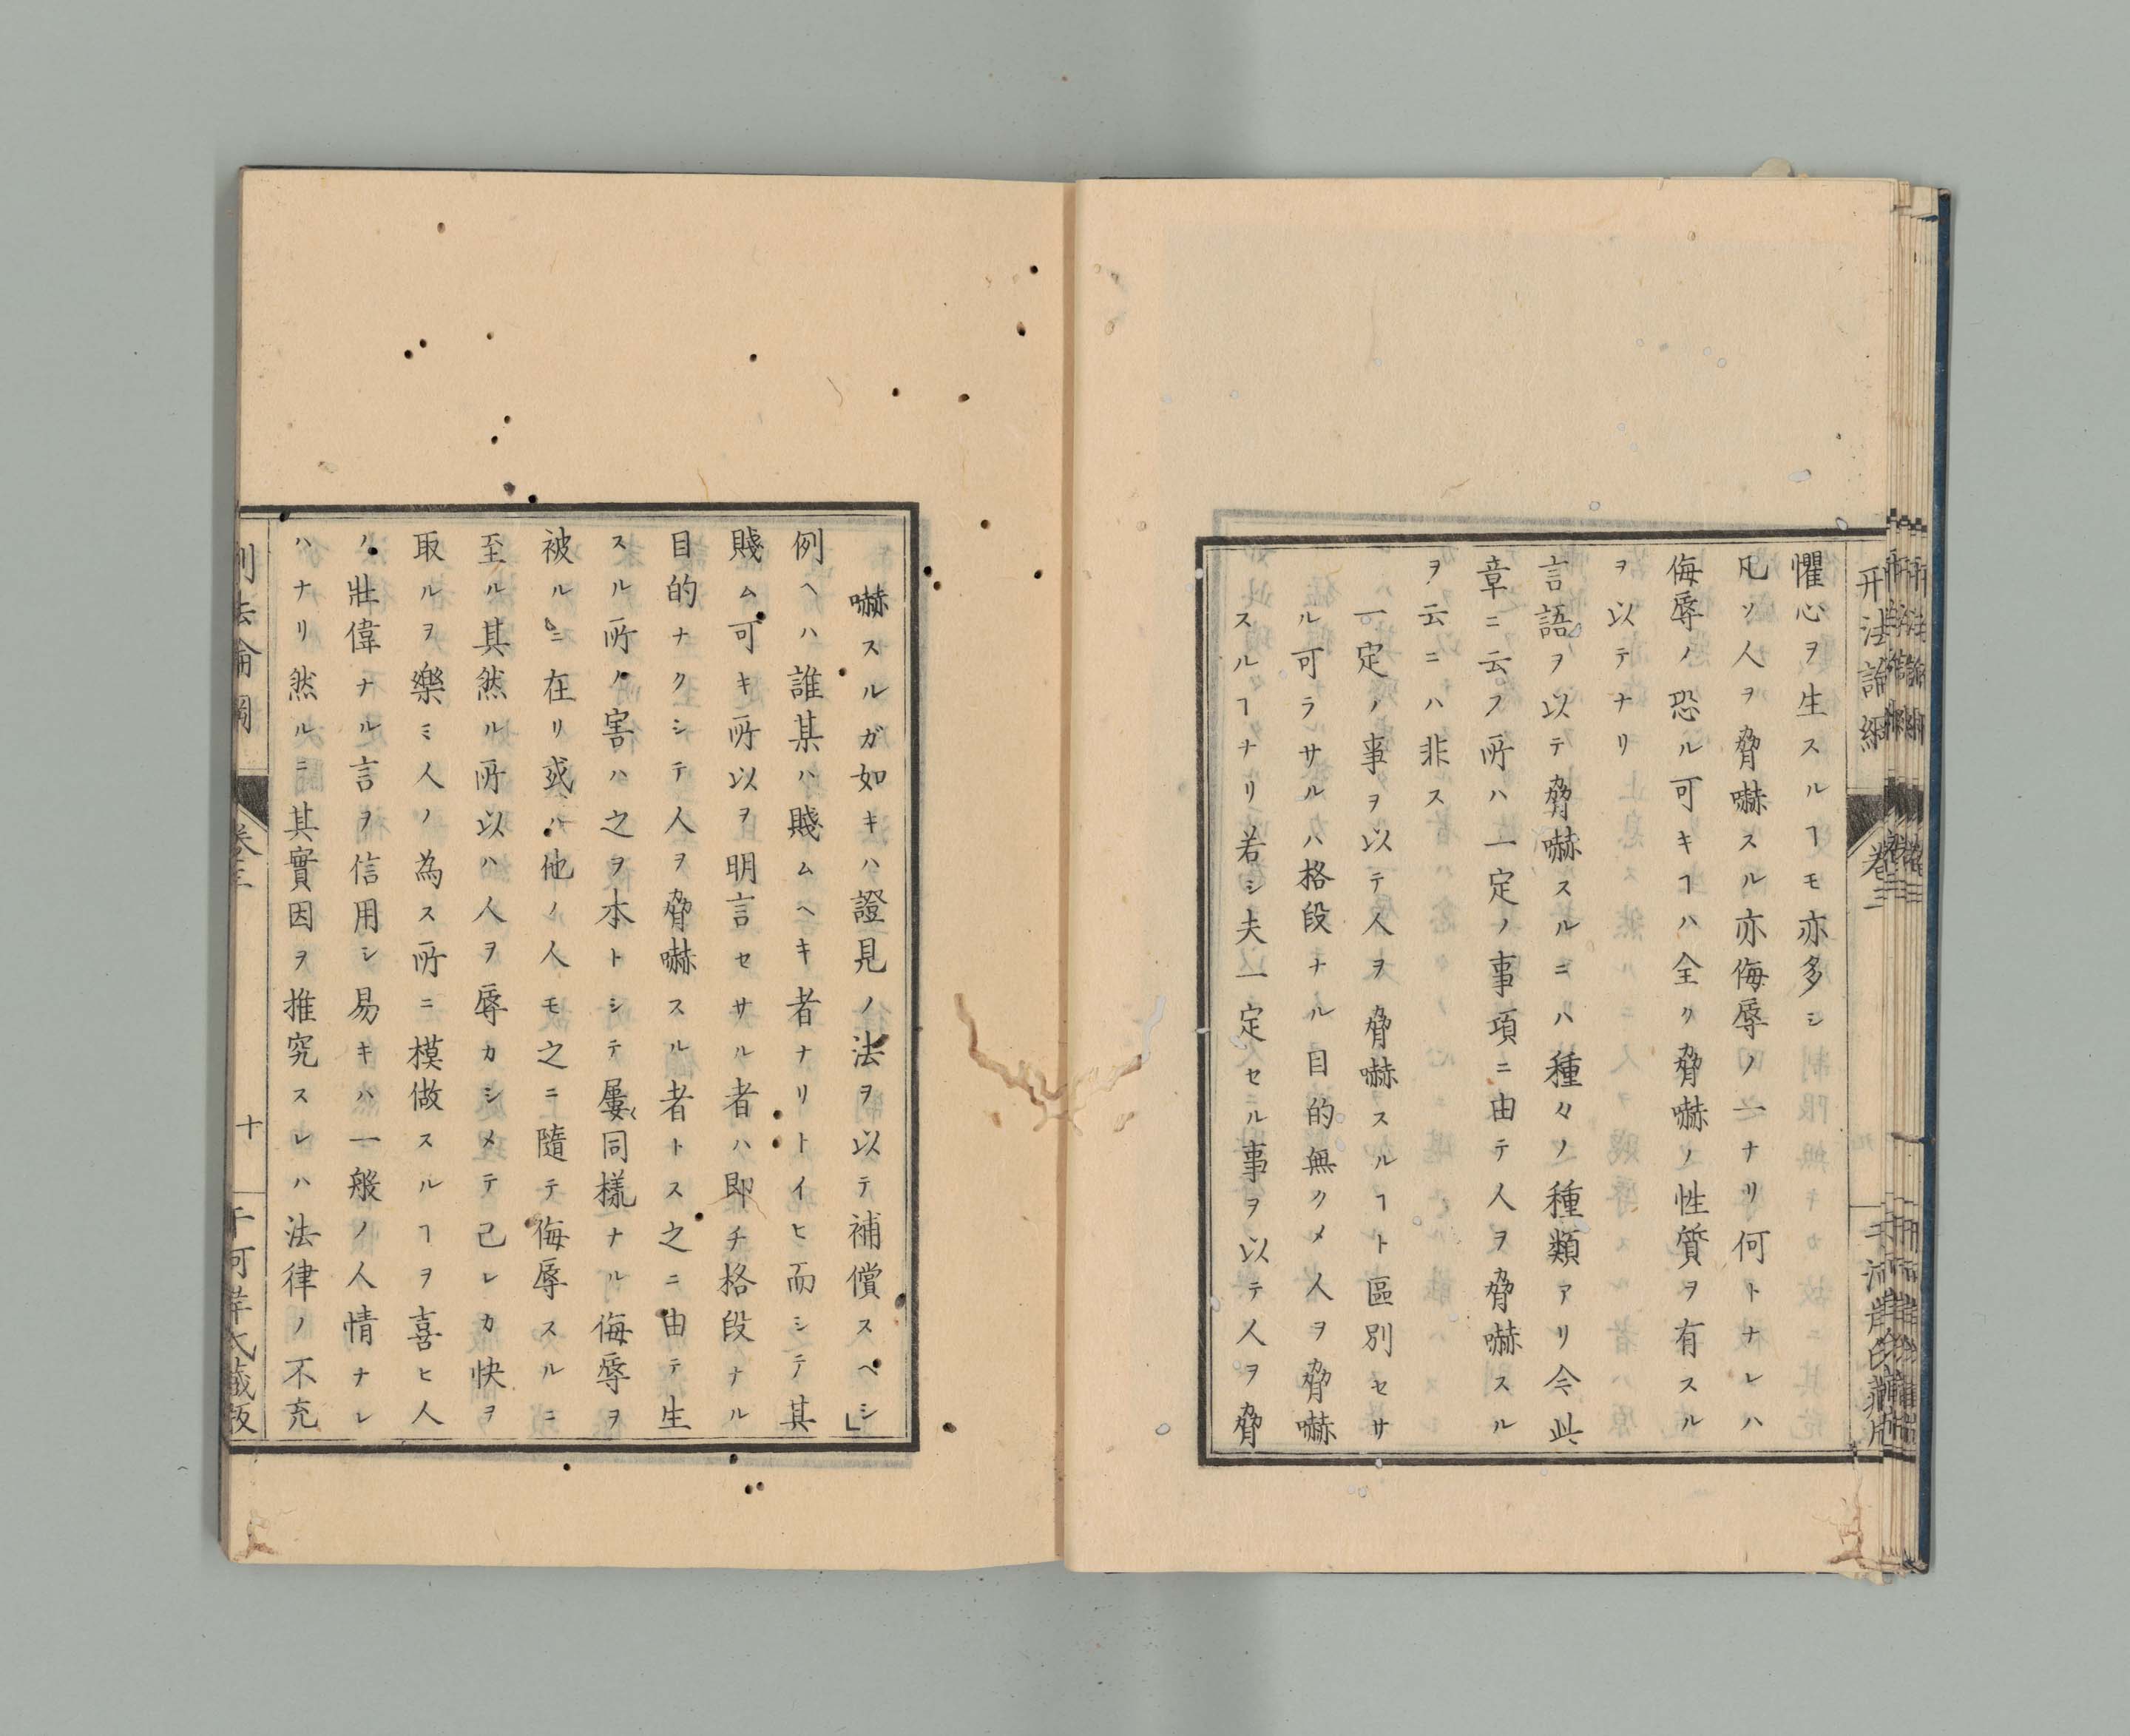 刑法論綱 卷三
懼心ヲ生スルヿモ亦多シ
凡ソ人ヲ脅嚇スル亦侮辱ノ一ナリ何トナレハ
侮辱ノ恐ル可キヿハ全ク脅嚇ノ性質ヲ有スル
ヲ以テナリ
言語ヲ以テ脅嚇スルニハ種々ノ種類アリ今此
章ニ云フ所ハ一定ノ事項ニ由テ人ヲ脅嚇スル
ヲ云ニハ非ス
一定ノ事ヲ以テ人ヲ脅嚇スルヿト區別セサ
ル可ラサルハ格段ナル目的無クメ人ヲ脅嚇
スルヿナリ若シ夫一定セル事ヲ以テ人ヲ脅
嚇スルガ如キハ證見ノ法ヲ以テ補償スベシ」
例ヘハ誰某ハ賤ムヘキ者ナリトイヒ而シテ其
賤ム可キ所以ヲ明言セサル者ハ即チ格段ナル
目的ナクシテ人ヲ脅嚇スル者トス之ニ由テ生
スル所ノ害ハ之ヲ本トシテ屢〻同樣ナル侮辱ヲ
被ルニ在リ或ハ他ノ人モ之ニ隨テ侮辱スルニ
至ル其然ル所以ハ人ヲ辱カシメテ己レカ快ヲ
取ルヲ樂ミ人ノ為ス所ニ模倣スルヿヲ喜ヒ人
ノ壯偉ナル言ヲ信用シ易キハ一般ノ人情ナレ
ハナリ然ルニ其實因ヲ推究スレハ法律ノ不充
刑法論綱 卷三 十 千河岸氏藏版